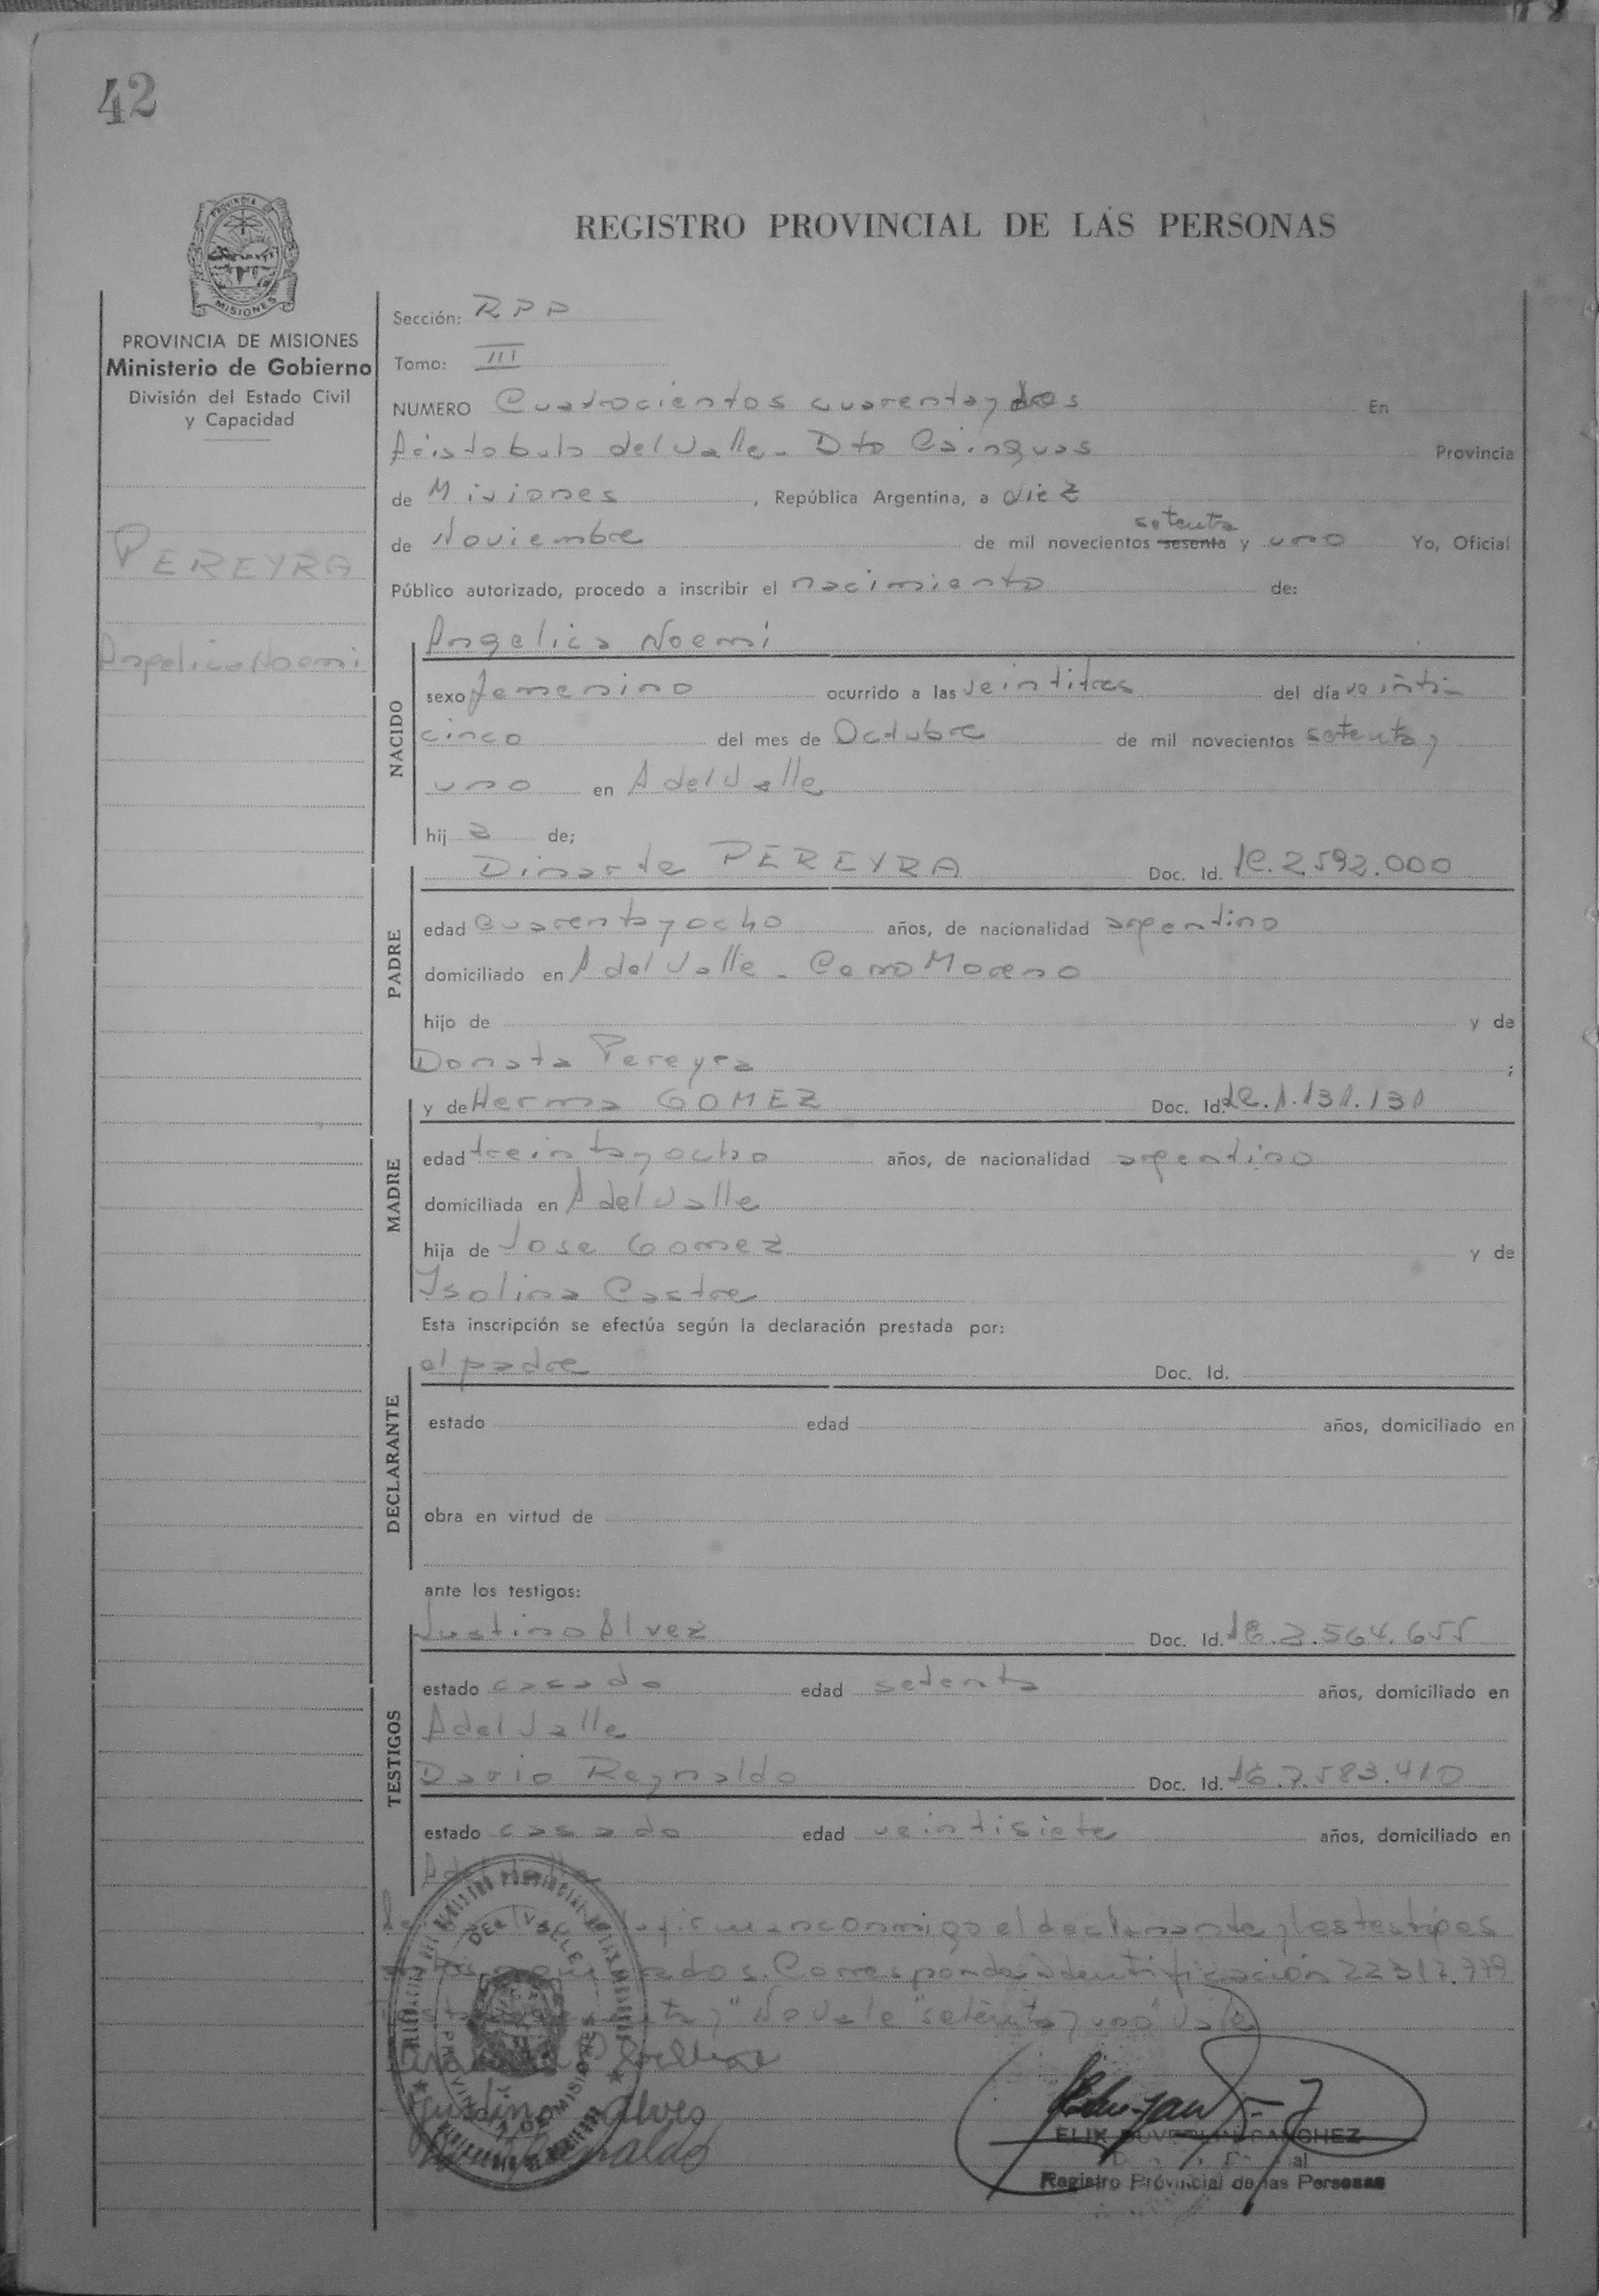 42
REGISTRO PROVINCIAL DE LAS PERSONAS
PROVINCIA DE
MISIONES
PROVINCIA DE MISIONES
Ministerio de Gobierno
División del Estado Civil
y Capacidad
PEREYRA
Angelica Noemi
Sección: RPP
Tomo: III
NUMERO Cuatrocientos cuarenta y dos En
Aristobulo del Valle - Dto Cainguas Provincia
de Misiones, República Argentina, a diez
setenta
de Noviembre de mil novecientos sesenta y uno Yo, Oficial
Público autorizado, procedo a inscribir el nacimiento de:
NACIDO
Angelica Noemi
sexo femenino ocurrido a las veintitres del día veinti-
cinco del mes de Octubre de mil novecientos setenta y
uno en A del Valle
hij a de;
PADRE
Dinarte PEREYRA Doc. Id. 1e. 2.592.000
edad cuarenta y ocho años, de nacionalidad argentino
domiciliado en A del Valle - Cerro Moreno
hijo de y de
Donata Pereyra ;
MADRE
y de Herma GOMEZ Doc. Id. LC. 1.131.131
edad treinta y ocho años, de nacionalidad argentino
domiciliada en A del Valle
hija de Jose Gomez y de
Isolina Castre
Esta inscripción se efectúa según la declaración prestada por:
DECLARANTE
el padre Doc. Id.
estado edad años, domiciliado en
obra en virtud de
ante los testigos:
TESTIGOS
Justino Alvez Doc. Id. 2.564.655
estado casado edad setenta años, domiciliado en
A del Valle
Dario Reynaldo Doc. Id. 7.583.410
estado casado edad veintisiete años, domiciliado en
A del Valle
firman conmigo el declarante y los testigos
Corresponde identificación 22317.779
No vale "setenta y uno" Vale
Justino Alves
Reinaldo
DEL VALLE
PROVINCIA DE MISIONES
SANCHEZ
Registro Provincial de las Personas